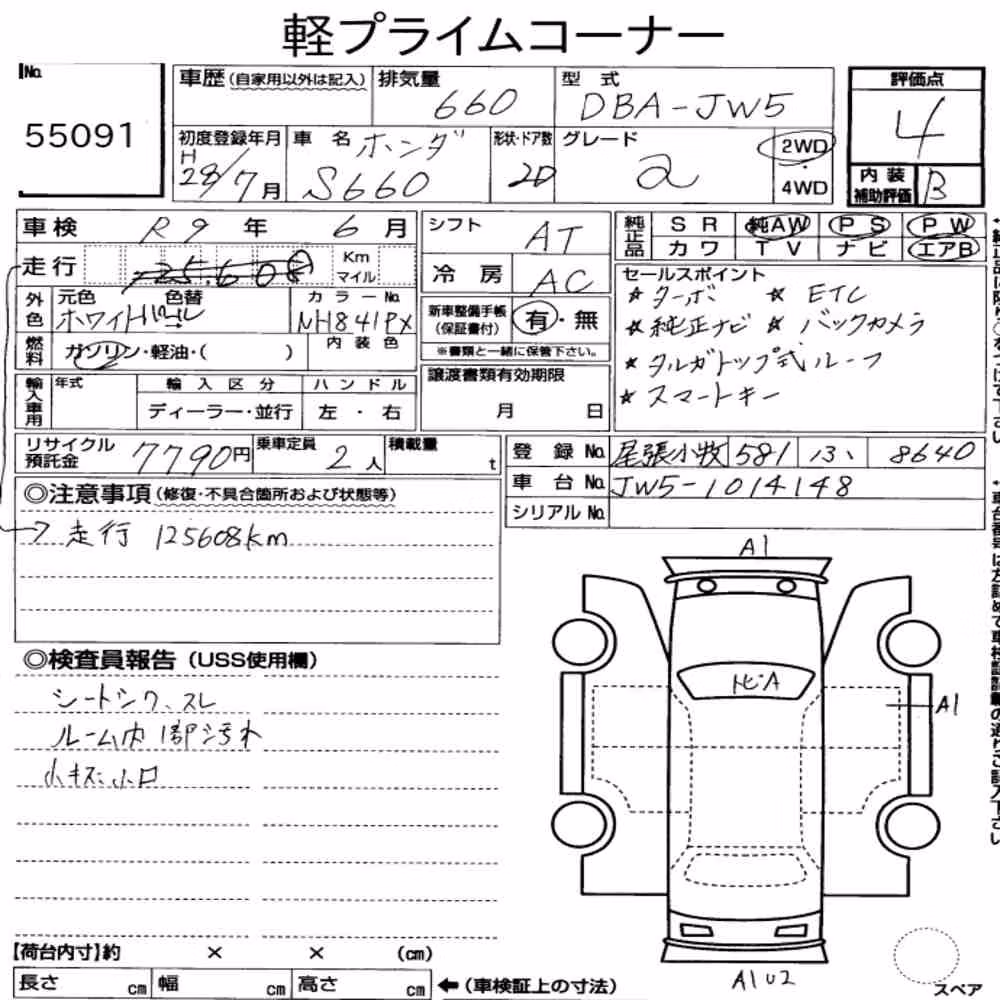 軽プライムコーナー
No.
55091
車歴(自家用以外は記入)
排気量
660
型式
DBA-JW5
評価点
4
初度登録年月
H
28/7月
車名 ホンダ
S660
形状・ドア数
2D
グレード
α
2WD
・
4WD
内装
補助評価
B
車検 R9年 6月
走行 125608
Km
マイル
シフト AT
冷房 AC
純正品
SR 純AW PS PW
カワ TV ナビ エアB
外色
元色 色替
ホワイトパール
カラーNo.
NH841PX
内装色
燃料
ガソリン・軽油・( )
新車整備手帳
(保証書付)
有・無
※書類と一緒に保管下さい。
セールスポイント
☆ターボ ☆ETC
☆純正ナビ ☆バックカメラ
☆タルガトップ式ルーフ
☆スマートキー
輸入車用
年式
輸入区分
ハンドル
ディーラー・並行
左・右
譲渡書類有効期限
月 日
リサイクル
預託金
7790円
乗車定員
2人
積載量
t
登録No. 尾張小牧 581 い 8640
車台No. JW5-1014148
シリアルNo.
◎注意事項(修復・不具合箇所および状態等)
→走行 125608km
◎検査員報告(USS使用欄)
シートシワ、スレ
ルーム内1部汚れ
小キズ小凹
A1
トビA
A1
A1U2
スペア
【荷台内寸】約 × × (cm)
長さ cm 幅 cm 高さ cm ←(車検証上の寸法)